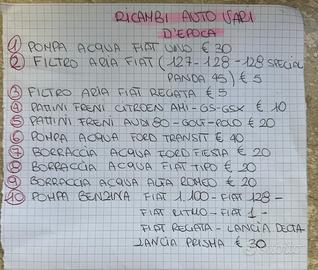 RICAMBI AUTO VARI
D'EPOCA
1 POMPA ACQUA FIAT UNO € 30
2 FILTRO ARIA FIAT (127-128-128 SPECIAL
PANDA 45) € 5
3 FILTRO ARIA FIAT REGATA € 5
4 PATTINI FRENI CITROEN AMI-GS-GSX € 10
5 PATTINI FRENI AUDI 80-GOLF-POLO € 20
6 POMPA ACQUA FORD TRANSIT € 40
7 BORRACCIA ACQUA FORD FIESTA € 20
8 BORRACCIA ACQUA FIAT TIPO € 20
9 BORRACCIA ACQUA ALFA ROMEO € 20
10 POMPA BENZINA FIAT 1.100-FIAT 128-
FIAT RITMO-FIAT 1-
FIAT REGATA-LANCIA DELTA-
LANCIA PRISMA € 30